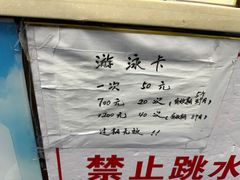 游泳卡
一次 50元
700元 20次（有效期 5个月）
1200元 40次（有效期 8个月）
过期无效!!
禁止跳水